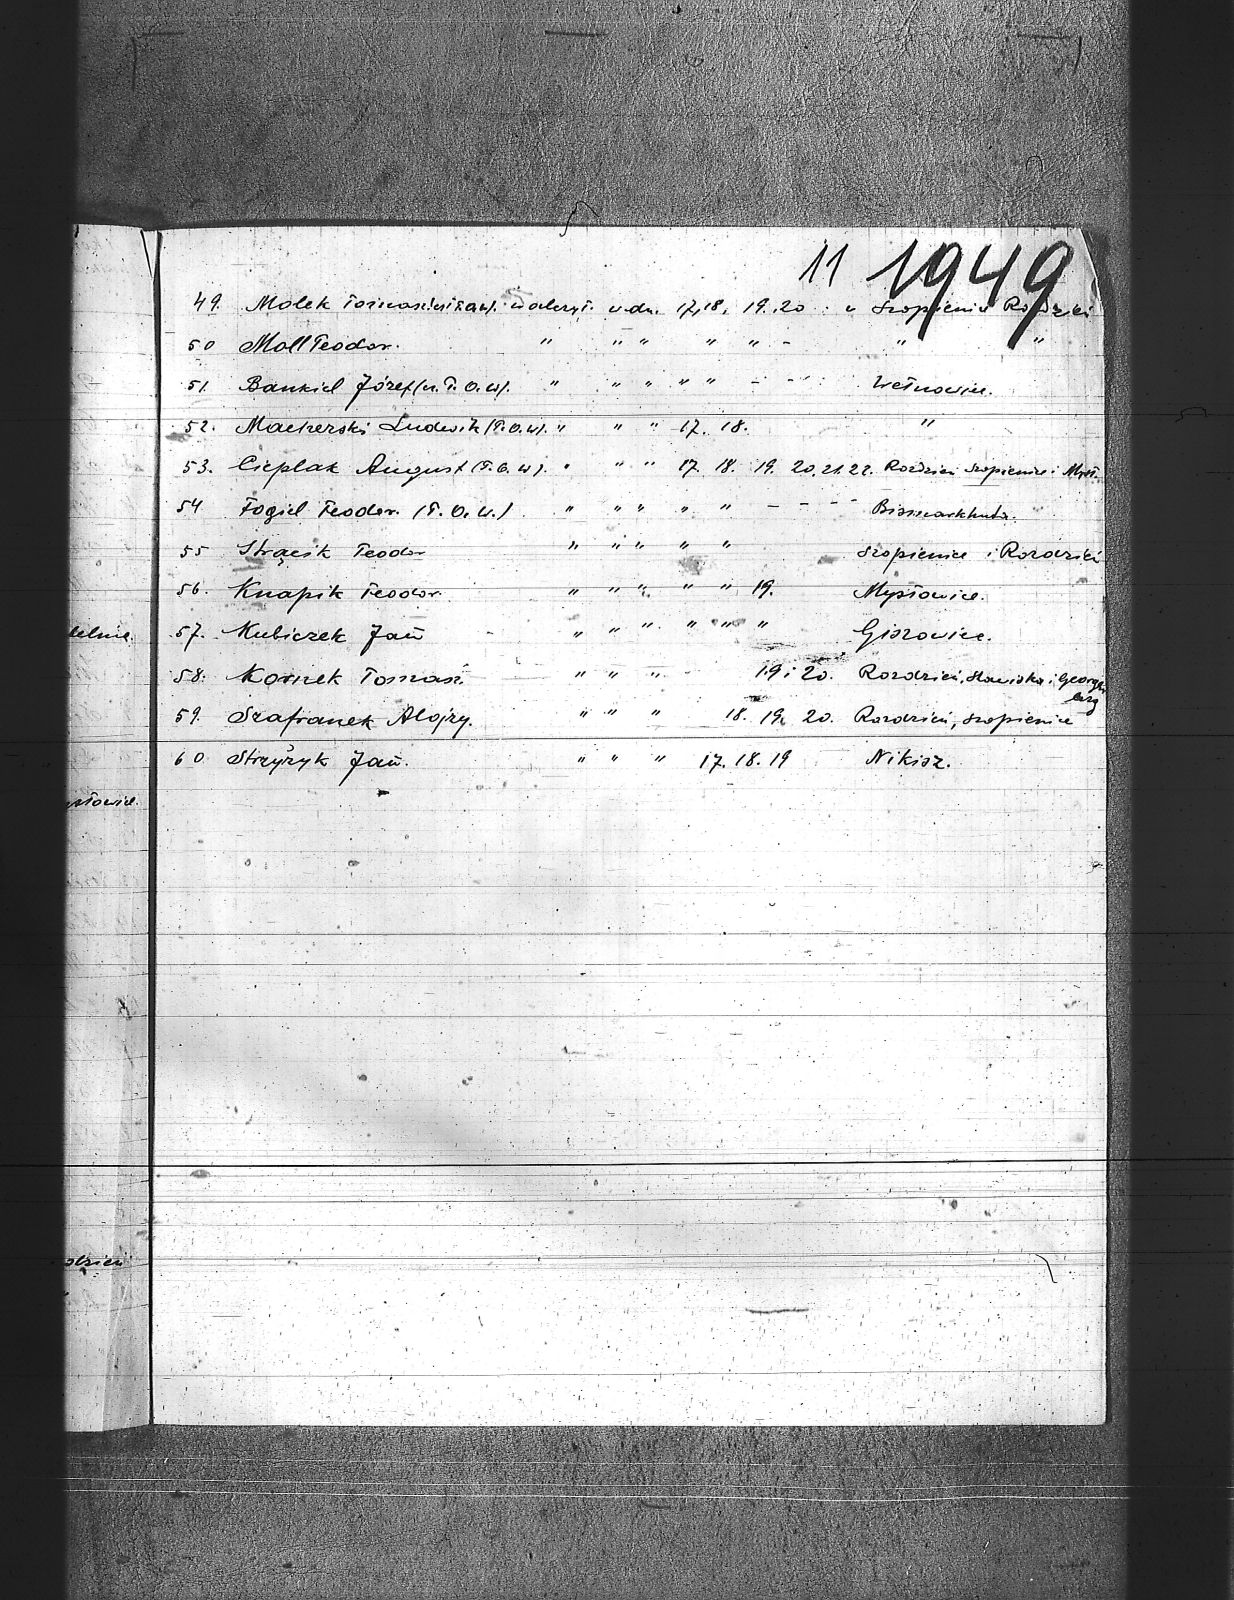 11 1949
49. Molek Tomasz walczył w dn. 17, 18, 19. 20 w Szopienic Rozdzień
50 Moll Teodor. " " " " " - " "
51. Bankiel Józef (n. P. O. W). " " " " " - - Wełnowiec.
52. Macherski Ludwik (P. O. W). " " " 17. 18. "
53. Cieplak August (P. O. W). " " " 17. 18. 19. 20. 21. 22. Rozdzień Szopienice i Mysł.
54 Fogiel Teodor. (P. O. W.) " " " " " - - - Bismarkhuta.
55 Strącik Teodor " " " " " Szopienice i Rozdzień
56. Knapik Teodor. " " " " " 19. Mysłowice.
57. Kubiczek Jan " " " " " " Giszowiec.
58. Kornek Tomasz " " " 19 i 20. Rozdzień, Sławiska i Georgen
berg
59. Szafranek Alojzy. " " " 18. 19. 20. Rozdzień, Szopienice
60 Strzyżyk Jan. " " " 17. 18. 19 Nikisz.